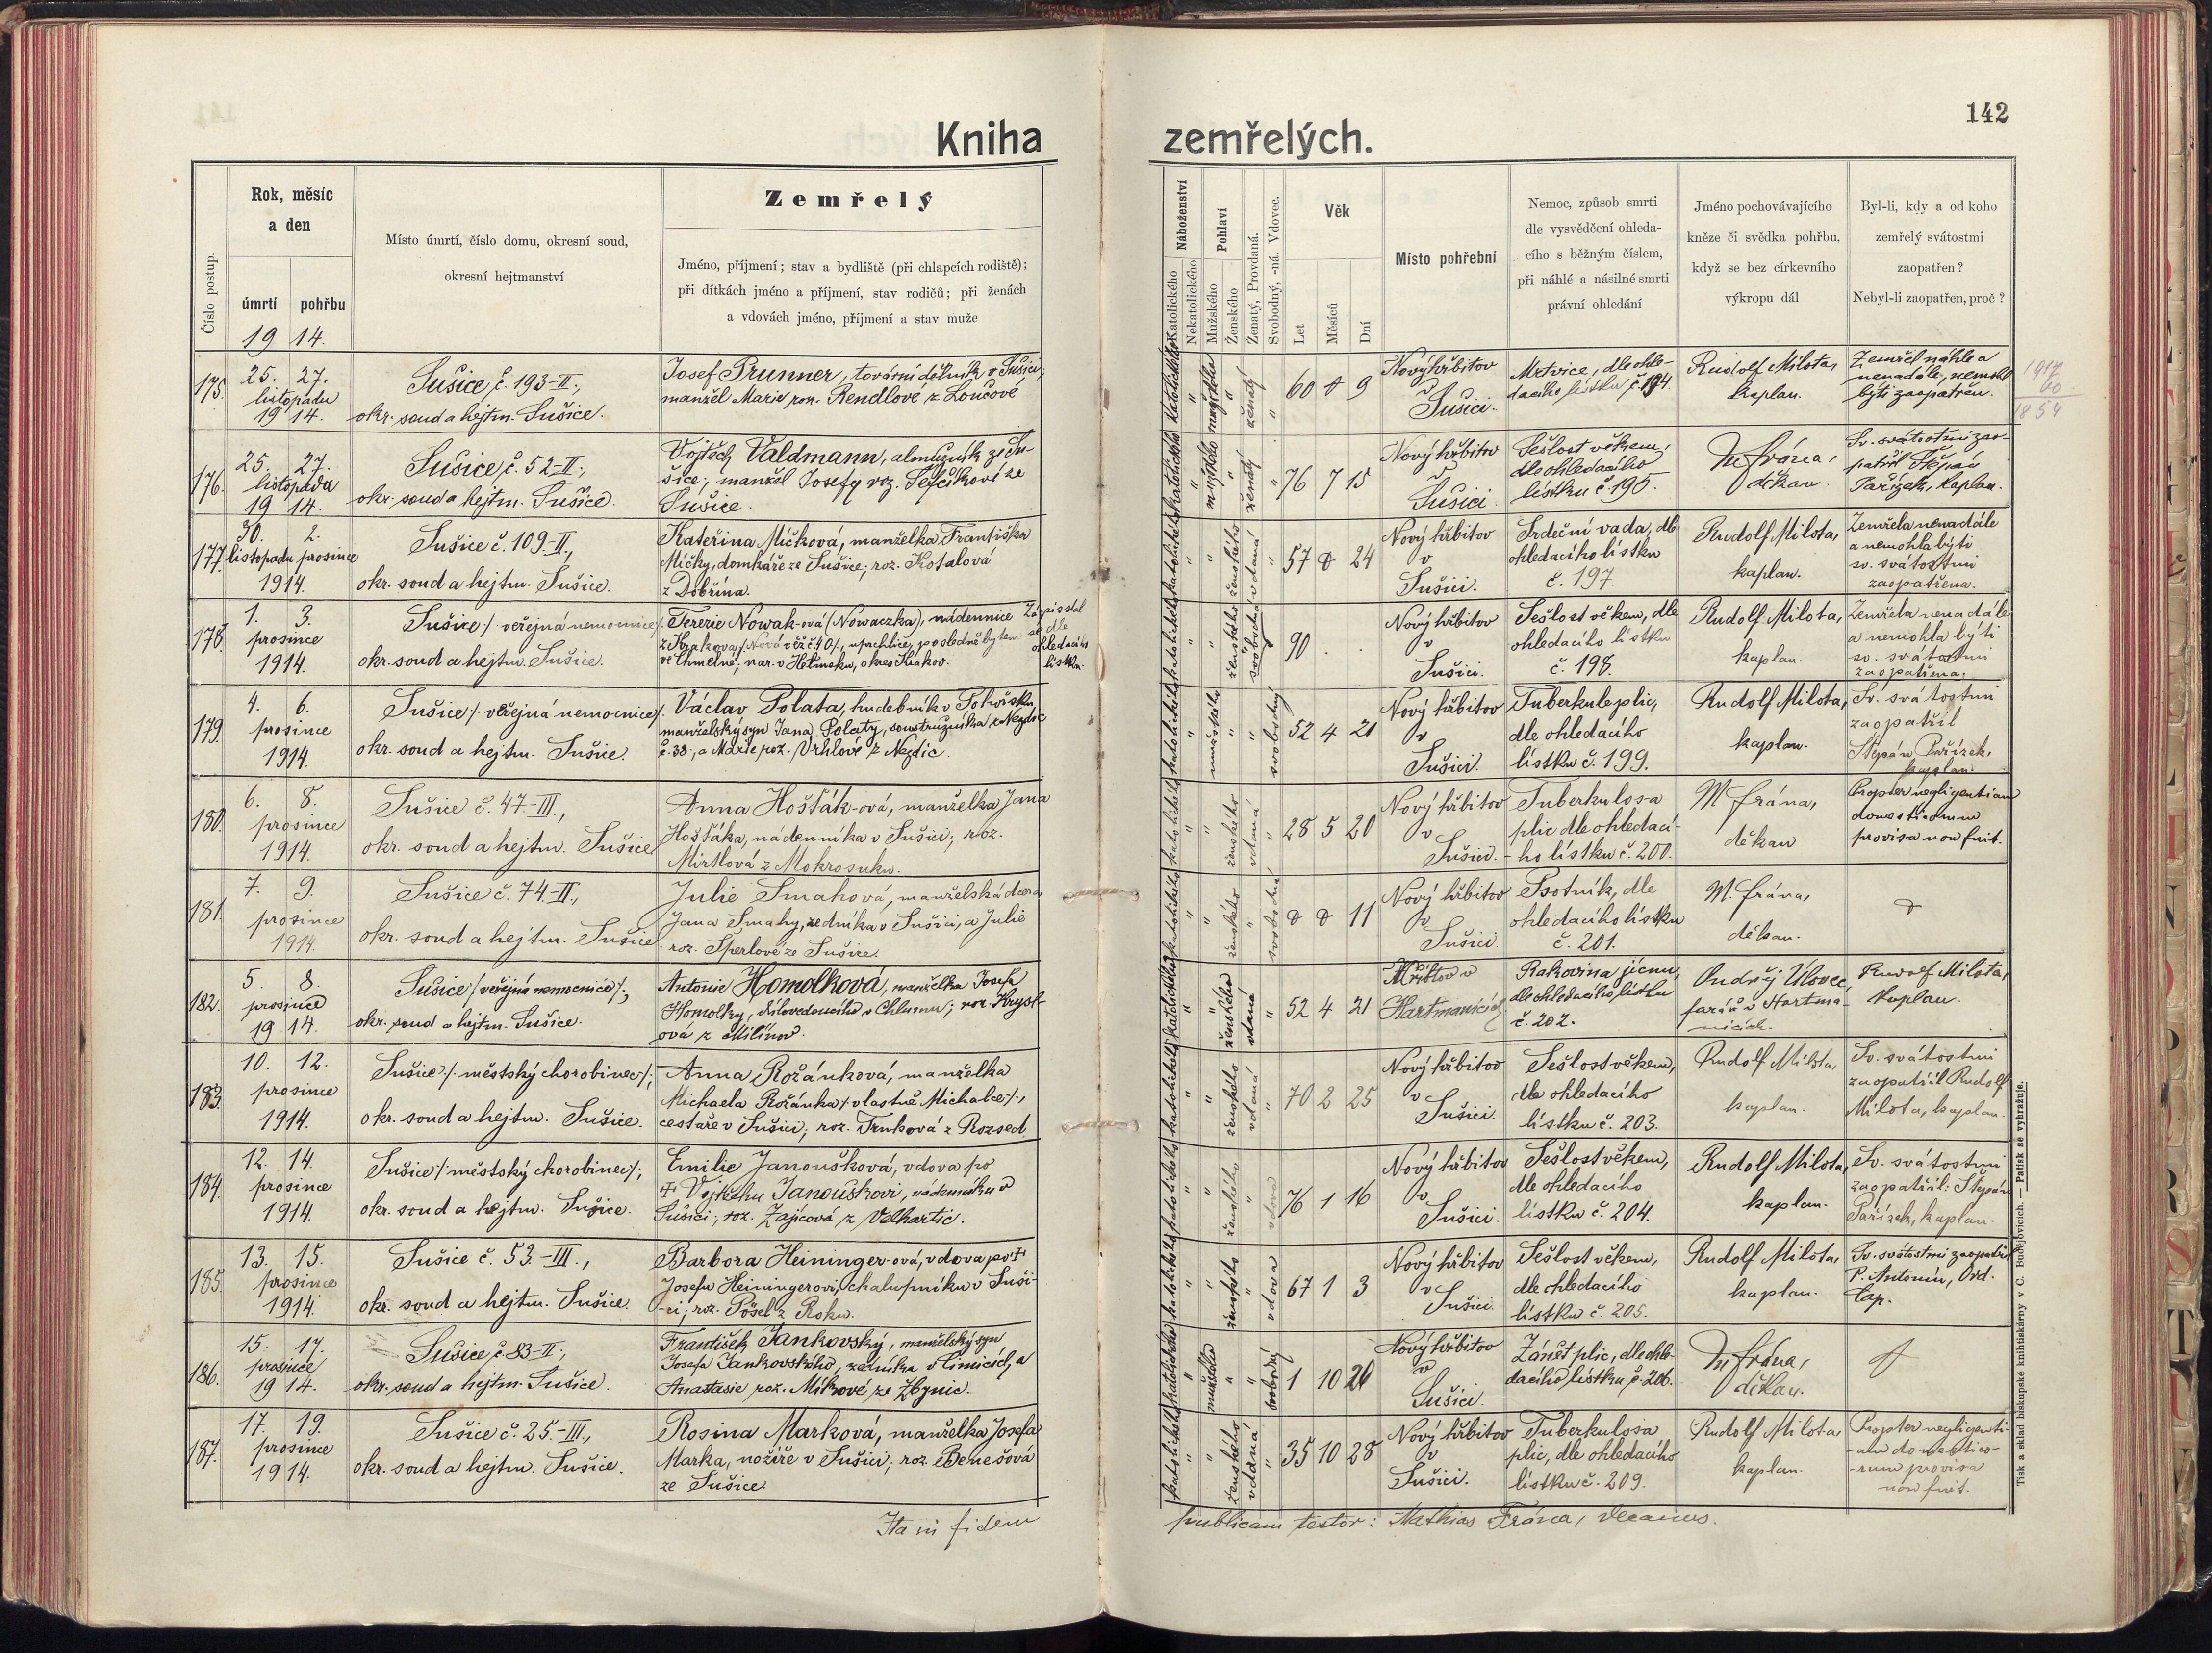 142
Kniha zemřelých.
Číslo postup.
Rok, měsíc
a den
úmrtí pohřbu
19 14.
Místo úmrtí, číslo domu, okresní soud,
okresní hejtmanství
Zemřelý
Jméno, příjmení; stav a bydliště (při chlapcích rodiště);
při dítkách jméno a příjmení, stav rodičů; při ženách
a vdovách jméno, příjmení a stav muže
Náboženství
Katolického
Nekatolického
Pohlaví
Mužského
Ženského
Ženatý, Provdaná.
Svobodný, -ná. Vdovec.
Věk
Let
Měsíců
Dní
Místo pohřební
Nemoc, způsob smrti
dle vysvědčení ohleda-
cího s běžným číslem,
při náhlé a násilné smrti
právní ohledání
Jméno pochovávajícího
kněze či svědka pohřbu,
když se bez církevního
výkropu dál
Byl-li, kdy a od koho
zemřelý svátostmi
zaopatřen?
Nebyl-li zaopatřen, proč?
175. 25. 27.
listopadu
19 14.
Sušice, č. 193-II.,
okr. soud a hejtm. Sušice.
Josef Prunner, tovární dělník v Sušici,
manžel Marie roz. Rendlové z Loučové
katolického " mužského " ženatý "
60 0 9
Nový hřbitov
v
Sušici.
Mrtvice, dle ohle-
dacího lístku č. 194.
Rudolf Milota,
kaplan.
Zemřel náhle a
nenadále, nemohl
býti zaopatřen.
1914
60
1854
176. 25. 27.
listopadu
19 14.
Sušice, č. 52-II.,
okr. soud a hejtm. Sušice.
Vojtěch Valdmann, almužník ze Su-
šice, manžel Josefy roz. Šejčíkové ze
Sušice.
katolického " mužského " ženatý "
76 7 15
Nový hřbitov
v
Sušici
Sešlost věkem,
dle ohledacího
lístku č. 195.
M. Frána,
děkan.
Sv. svátostmi zao-
patřil Štěpán
Pařízek, kaplan.
177. 30. 2.
listopadu prosince
1914.
Sušice č. 109.-II.,
okr. soud a hejtm. Sušice.
Kateřina Míčková, manželka Františka
Míčky, domkáře ze Sušice; roz. Kotalová
z Dobřína.
katolického " " ženského vdaná "
57 0 24
Nový hřbitov
v
Sušici.
Srdeční vada, dle
ohledacího lístku
č. 197.
Rudolf Milota,
kaplan.
Zemřela nenadále
a nemohla býti
sv. svátostmi
zaopatřena.
178. 1. 3.
prosince
1914.
Sušice /: veřejná nemocnice/:
okr. soud a hejtm. Sušice.
Terezie Nowak-ová (Nowaczka), nádennice
z Krakova /: Nová věž č. 40/:, uprchlice, posledně bytem
ve Chmelné; nar. v Hetmeku, okres Krakov.
Zápis stal
se dle
ohledacího
lístku.
katolického " " ženského " svobodná
90 . .
Nový hřbitov
v
Sušici.
Sešlost věkem, dle
ohledacího lístku
č. 198.
Rudolf Milota,
kaplan.
Zemřela nenadále
a nemohla býti
sv. svátostmi
zaopatřena.
179. 4. 6.
prosince
1914.
Sušice /: veřejná nemocnice/:
okr. soud a hejtm. Sušice.
Václav Polata, hudebník v Potvísku,
manželský syn Jana Polaty, soustružníka z Nezdic
č. 38., a Marie roz. Vrhlové z Nezdic.
katolického " mužského " " svobodný
52 4 21
Nový hřbitov
v
Sušici.
Tuberkule plic,
dle ohledacího
lístku č. 199.
Rudolf Milota,
kaplan.
Sv. svátostmi
zaopatřil
Štěpán Pařízek,
kaplan.
180. 6. 8.
prosince
1914.
Sušice č. 47.-III.,
okr. soud a hejtm. Sušice
Anna Hošťák-ová, manželka Jana
Hošťáka, nádenníka v Sušici; roz.
Mirtlová z Mokrosuku.
katolického " " ženského vdaná "
28 5 20
Nový hřbitov
v
Sušici.
Tuberkulosa
plic dle ohledací-
ho lístku č. 200.
M Frána,
děkan
Propter negligentiam
domesticorum
provisa non fuit.
181. 7. 9.
prosince
1914.
Sušice č. 74.-II.,
okr. soud a hejtm. Sušice
Julie Smahová, manželská dcera
Jana Smahy, zedníka v Sušici, a Julie
roz. Šperlové ze Sušice.
katolického " " ženského " svobodná
0 0 11
Nový hřbitov
v
Sušici.
Psotník, dle
ohledacího lístku
č. 201.
M. Frána,
děkan.
182. 5. 8.
prosince
19 14.
Sušice /veřejná nemocnice/:,
okr. soud a hejtm. Sušice.
Antonie Homolková, manželka Josefa
Homolky, dílovedoucího v Chlumu; roz. Krysl-
ová z Milínov.
katolického " " ženského vdaná "
52 4 21
Hřbitov v
Hartmanicích
Rakovina jícnu,
dle ohledacího lístku
č. 202.
Ondřej Úlovec,
farář v Hartma-
nicích.
Rudolf Milota,
kaplan.
183. 10. 12.
prosince
1914.
Sušice /: městský chorobinec/:;
okr. soud a hejtm. Sušice.
Anna Rožánková, manželka
Michaela Rožánka /: vlastně Michalce/:,
cestáře v Sušici; roz. Trnková z Rozsed.
katolického " " ženského vdaná "
70 2 25
Nový hřbitov
v
Sušici.
Sešlost věkem,
dle ohledacího
lístku č. 203.
Rudolf Milota,
kaplan.
Sv. svátostmi
zaopatřil Rudolf
Milota, kaplan.
184. 12. 14.
prosince
1914.
Sušice /: městský chorobinec/:;
okr. soud a hejtm. Sušice.
Emilie Janoušková, vdova po
† Vojtěchu Janouškovi, nádenníku v
Sušici; roz. Zajícová z Velhartic.
katolického " " ženského " vdova
76 1 16
Nový hřbitov
v
Sušici.
Sešlost věkem,
dle ohledacího
lístku č. 204.
Rudolf Milota,
kaplan.
Sv. svátostmi
zaopatřil: Štěpán
Pařízek, kaplan.
185. 13. 15.
prosince
1914.
Sušice č. 53.-III.,
okr. soud a hejtm. Sušice.
Barbora Heininger-ová, vdova po †
Josefu Heiningerovi, chalupníku v Suši-
-ci; roz. Pösel z Roku.
katolického " " ženského " vdova
67 1 3
Nový hřbitov
v
Sušici.
Sešlost věkem,
dle ohledacího
lístku č. 205.
Rudolf Milota,
kaplan.
Sv. svátostmi zaopatřil
P. Antonín, Ord.
Cap.
186. 15. 17.
prosince
19 14.
Sušice, č. 83-II.,
okr. soud a hejtm. Sušice.
František Jankovský, manželský syn
Josefa Jankovského, zedníka v Čimicích, a
Anastasie roz. Míkové ze Zbynic.
katolického " mužského " " svobodný
1 10 20
Nový hřbitov
v
Sušici.
Zánět plic, dle ohle-
dacího lístku, č. 206.
M. Frána,
děkan.
187. 17. 19.
prosince
1914.
Sušice č. 25.-III.,
okr. soud a hejtm. Sušice.
Rosina Marková, manželka Josefa
Marka, nožíře v Sušici; roz. Benešová
ze Sušice.
katolického " " ženského vdaná "
35 10 28
Nový hřbitov
v
Sušici.
Tuberkulosa
plic, dle ohledacího
lístku č. 209.
Rudolf Milota
kaplan.
Propter negligenti-
-am domestico-
-rum provisa
non fuit.
Ita in fidem publicam testor: Mathias Frána, decanus.
Tisk a sklad biskupské knihtiskárny v Č. Budějovicích. — Patisk se vyhražuje.